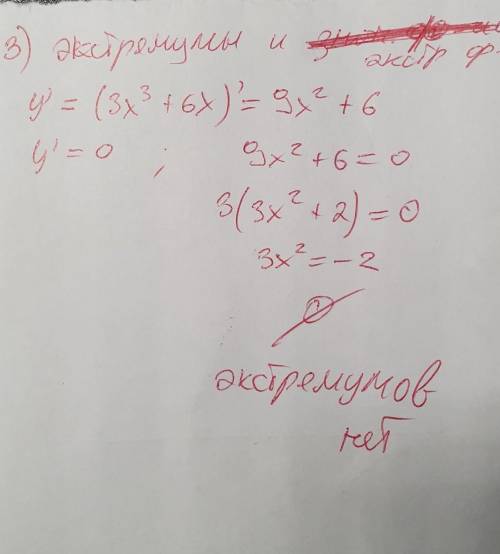 3) экстремумы и
экстр ф.
y' = (3x³ + 6x)' = 9x² + 6
y' = 0 ; 9x² + 6 = 0
3(3x² + 2) = 0
3x² = -2
∅
экстремумов
нет